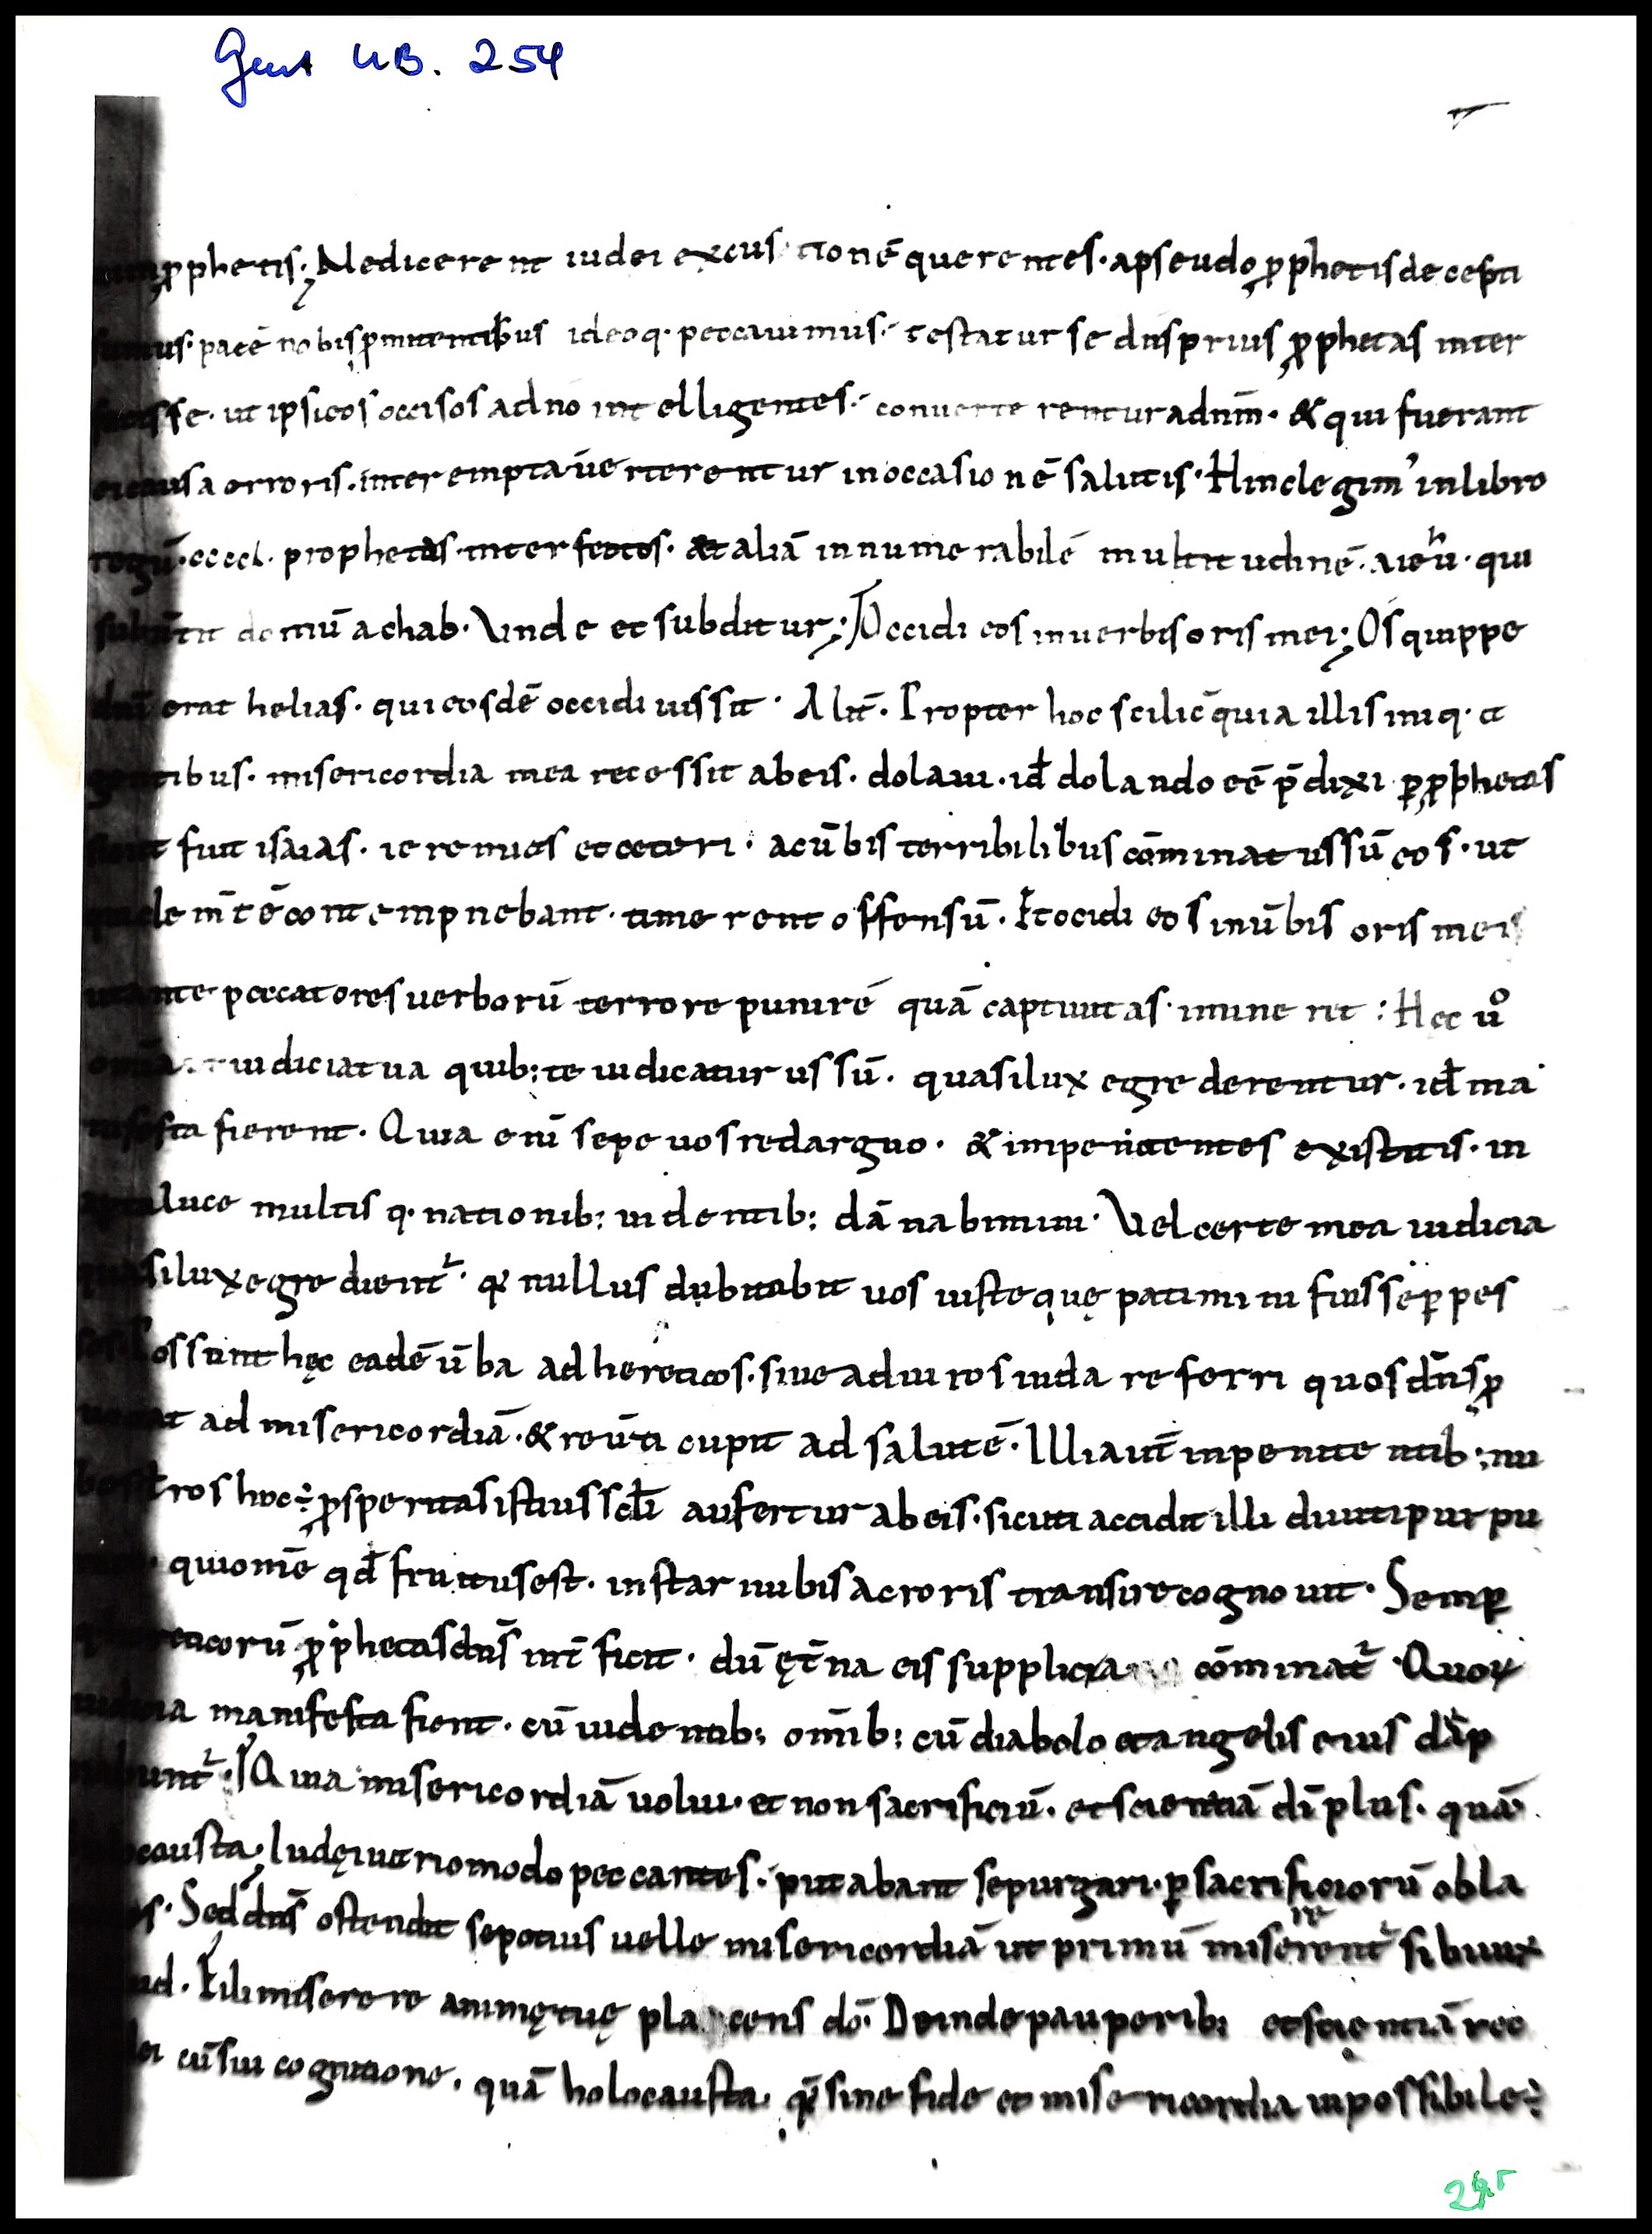 Gent UB. 254
ꝓphetis; Nedicerent iudei excusationē querentes· apseudoꝓphetisdecepti
sumus· pacē nobisꝓmittentibus ideoq· peccauimus· testatur se dn̄sprius ꝓphetas inter
fecisse· ut ipsicos occisos adno intelligentes· conuerterentur adnm̄· & qui fuerant
eicausa erroris· interempta ūerterentur inoccasionē salutis· Hinclegim᾿ inlibro
regū· ccccl· prophetas· interfectos· & aliā innumerabilē multitudinē· aiehū· qui
domū achab· Unde et subditur; Occidi eos inuerbis oris mei; Os quippe
dn̄i erat helias· qui eosdē occidi iussit· Alit̄· Propter hoc scilic̄ quia illis iniq· a
gentibus· misericordia mea recessit abeis· dolaui· id̄ dolando eē p̄dixi ꝑꝓphetas
sicut fuit isaias· ieremias et ceteri· acūbis terribilibus cōminatus sū eos· ut
m̄tē contempnebant· timerent offensū· Et occidi eos inūbis oris mei
utante peccatores uerborū terrore punirē quā captiuitas immineret: Hec ūo
iudiciatua quib: te iudicaturus sū· quasilux egrederentur· id̄ ma
nifesta fierent· Quia enī sepe uos redarguo· & impenitentes existitis· in
luce multis q· nationib: uidentib: dānabimini· Uel certe mea iudicia
quasilux egredient᷑· qr nullus dubitabit uos iuste quę patimini fuisse ꝑpes
Possunt hęc eadē ūba ad hereticos· siue ad uiros iuda referri quos dn̄s ꝓ
uocat ad misericordiā· & reūti cupit ad salutē· Illi aut̄ inpenitentib: nu
ros hoc÷ ꝓsperitas istius scl̄i aufertur abeis· sicuti accidit illi diuiti purpu
quiomē qd̄ fruitus est· instar nubis ac roris transire cognouit· Semꝑ
hereticorū ꝓphetas dn̄s int̄ficit· dū ęt̄na eis supplicia cōminat᷑· Quoꝝ
iudicia manifesta fient· cū uidentib: omīb: cū diabolo et angelis eius dāp
nabunt᷑· Quia misericordiā uolui· et non sacrificiū· et scientiā dī plus· quā
causta; Iudęi uario modo peccantes· putabant se purgari· ꝑ sacrificiorū obla
Sed dn̄s ostendit se potius uelle misericordiā ut primū miserent᷑ re sibi iux
Fili miserere animę tuę placens dō· Deinde pauperib: et scientiā rec
cū sui cognitione· quā holocausta· qr̄ sine fide et misericordia inpossibile÷
29r